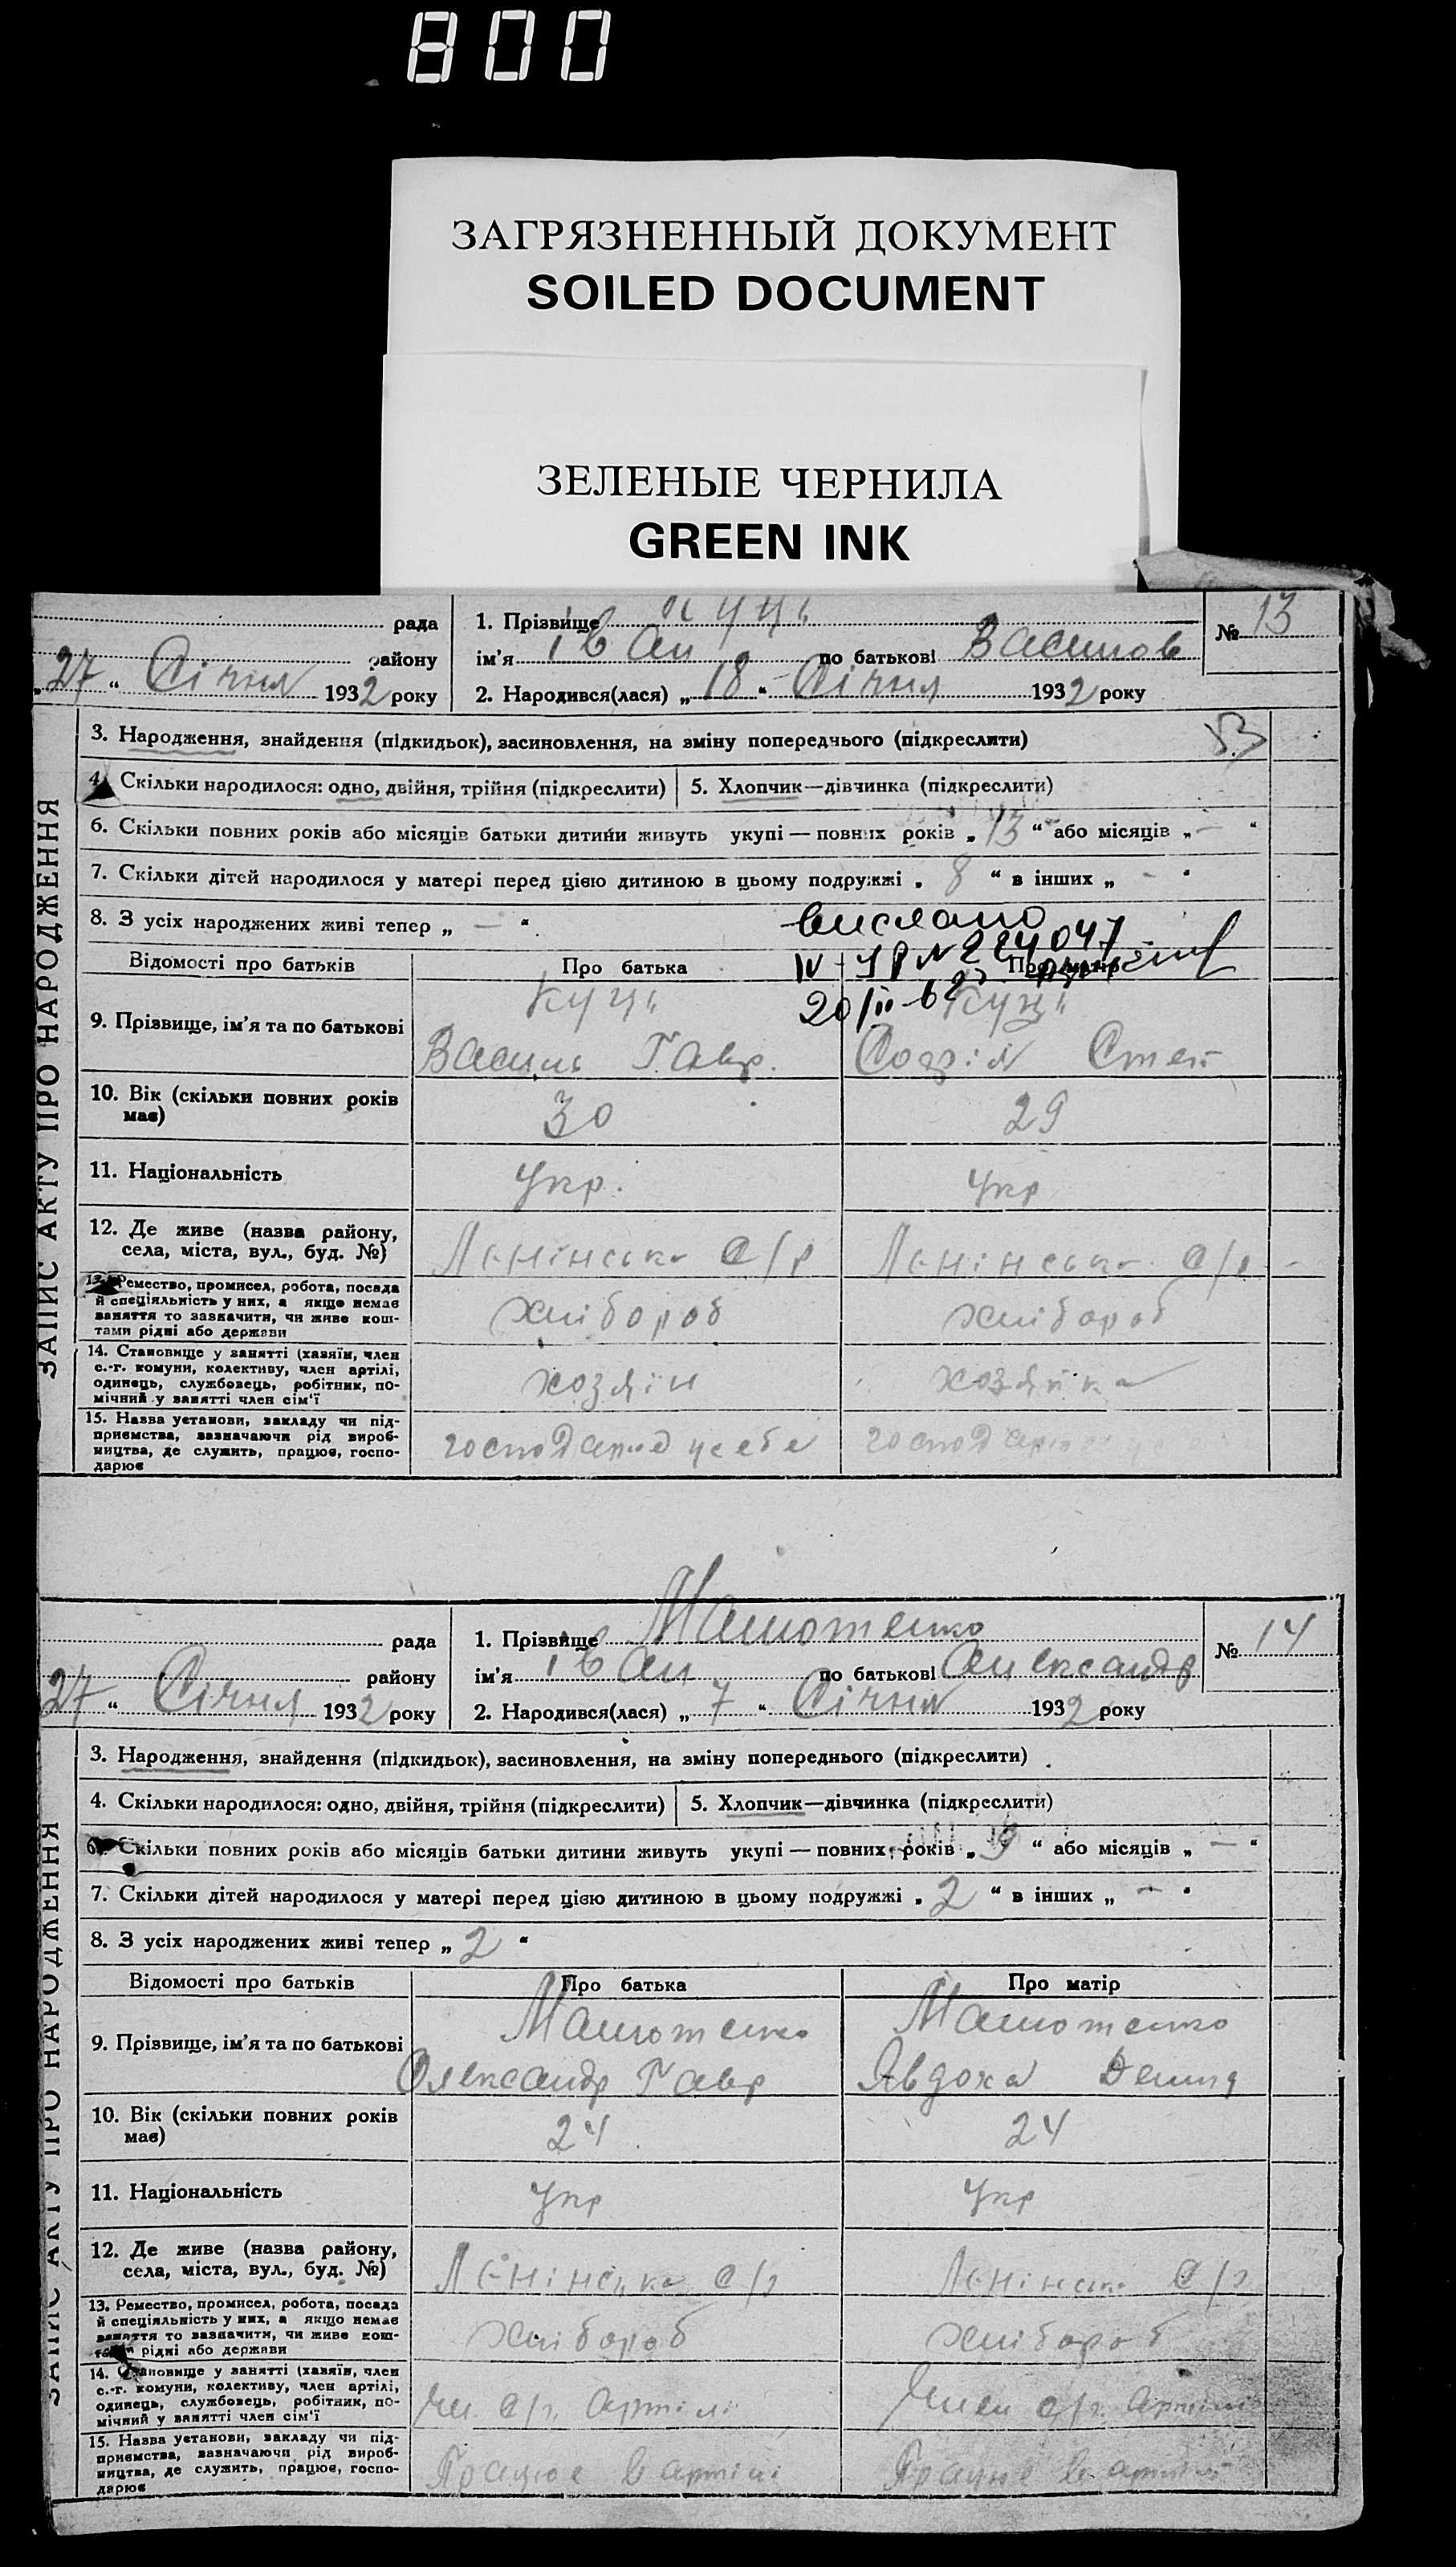 800
ЗАГРЯЗНЕННЫЙ ДОКУМЕНТ
SOILED DOCUMENT
ЗЕЛЕНЫЕ ЧЕРНИЛА
GREEN INK
рада
району
„27“ Січня 1932 року
1. Прізвище Куць
ім'я Іван по батькові Васильов
2. Народився(лася) „18“ Січня 1932 року
№ 13
ЗАПИС АКТУ ПРО НАРОДЖЕННЯ
3. Народження, знайдення (підкидьок), засиновлення, на зміну попереднього (підкреслити)
4. Скільки народилося: одно, двійня, трійня (підкреслити)
5. Хлопчик—дівчинка (підкреслити)
6. Скільки повних років або місяців батьки дитини живуть укупі — повних років „13“ або місяців „—“
7. Скільки дітей народилося у матері перед цією дитиною в цьому подружжі „8“ в інших „-“
8. З усіх народжених живі тепер „—“
вислано
Відомості про батьків
Про батька
Про матір
9. Прізвище, ім'я та по батькові
Куць
Василь Гавр.
Куць
Софія Степ
10. Вік (скільки повних років
має)
30
29
11. Національність
Укр.
Укр
12. Де живе (назва району,
села, міста, вул., буд. №)
Ленінська С/р
Ленінська С/р
13. Ремество, промисел, робота, посада
й спеціяльність у них, а якщо немає
заняття то зазначити, чи живе кош-
тами рідні або держави
хлібороб
хлібороб
14. Становище у занятті (хазяїн, член
с.-г. комуни, колективу, член артілі,
одинець, службовець, робітник, по-
мічний у занятті член сім'ї
хозяїн
хозяйка
15. Назва установи, закладу чи під-
приємства, зазначаючи рід вироб-
ництва, де служить, працює, госпо-
дарює
господарює у себе
господарює
рада
району
27“ Січня 1932 року
1. Прізвище Малютенко
ім'я Іван по батькові Александр
2. Народився(лася) „7“ Січня 1932 року
№ 14
ЗАПИС АКТУ ПРО НАРОДЖЕННЯ
3. Народження, знайдення (підкидьок), засиновлення, на зміну попереднього (підкреслити)
4. Скільки народилося: одно, двійня, трійня (підкреслити)
5. Хлопчик—дівчинка (підкреслити)
6. Скільки повних років або місяців батьки дитини живуть укупі — повних років „ “ або місяців „—“
7. Скільки дітей народилося у матері перед цією дитиною в цьому подружжі „2“ в інших „—“
8. З усіх народжених живі тепер „2“
Відомості про батьків
Про батька
Про матір
9. Прізвище, ім'я та по батькові
Малютенко
Олександр Гавр
Малютенко
Явдоха Демид
10. Вік (скільки повних років
має)
24
24
11. Національність
Укр
Укр
12. Де живе (назва району,
села, міста, вул., буд. №)
Ленінська С/р
Ленінська С/р
13. Ремество, промисел, робота, посада
й спеціяльність у них, а якщо немає
заняття то зазначити, чи живе кош-
тами рідні або держави
хлібороб
хлібороб
14. Становище у занятті (хазяїн, член
с.-г. комуни, колективу, член артілі,
одинець, службовець, робітник, по-
мічний у занятті член сім'ї
Чл. с/г. артілі
Член с/г. артілі
15. Назва установи, закладу чи під-
приємства, зазначаючи рід вироб-
ництва, де служить, працює, госпо-
дарює
Працює в артілі
Працює в артілі